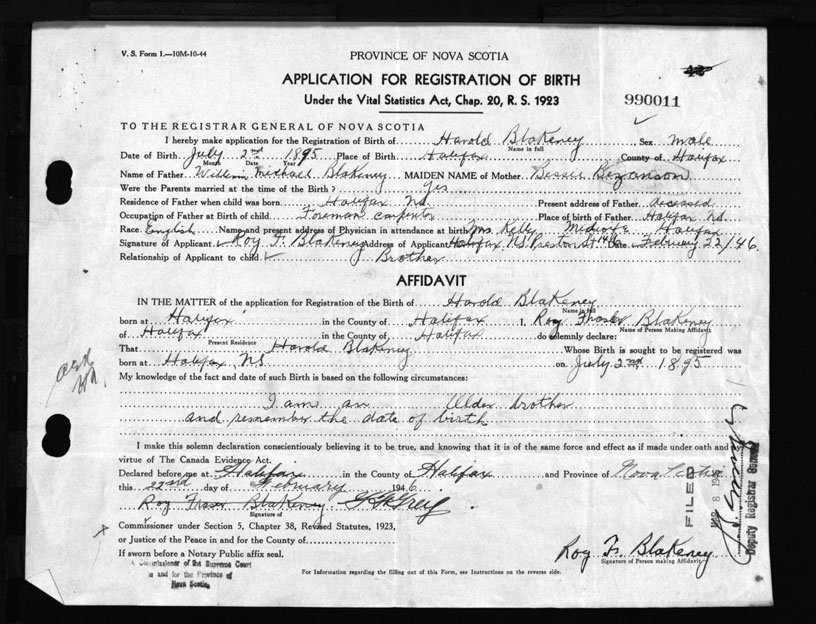 V. S. Form 1.—10M-10-44
PROVINCE OF NOVA SCOTIA
APPLICATION FOR REGISTRATION OF BIRTH
Under the Vital Statistics Act, Chap. 20, R. S. 1923
990011
TO THE REGISTRAR GENERAL OF NOVA SCOTIA
I hereby make application for the Registration of Birth of Harold Blakeney Sex male
Name in full
Date of Birth July 2nd 1895 Place of Birth Halifax County of Halifax
Month Date Year
Name of Father William Michael Blakeney MAIDEN NAME of Mother Bessie Bezanson
Were the Parents married at the time of the Birth? Yes
Residence of Father when child was born Halifax NS Present address of Father deceased
Occupation of Father at Birth of child Foreman carpenter Place of birth of Father Halifax NS.
Race English Name and present address of Physician in attendance at birth Mrs Kelly Midwife Halifax
Signature of Applicant Roy F. Blakeney Address of Applicant Halifax NS Preston St Date February 22/46.
Relationship of Applicant to child Brother
AFFIDAVIT
IN THE MATTER of the application for Registration of the Birth of Harold Blakeney
Name in full
born at Halifax in the County of Halifax I, Roy Fraser Blakeney
Name of Person Making Affidavit
of Halifax in the County of Halifax do solemnly declare:
Present Residence
That Harold Blakeney Whose Birth is sought to be registered was
born at Halifax, NS on July 2nd 1895
My knowledge of the fact and date of such Birth is based on the following circumstances:
I am an Older brother
and remember the date of birth
I make this solemn declaration conscientiously believing it to be true, and knowing that it is of the same force and effect as if made under oath and by
virtue of The Canada Evidence Act.
Declared before me at Halifax in the County of Halifax and Province of Nova Scotia
this 22nd day of February 1946
Roy Fraser Blakeney
Signature of
Commissioner under Section 5, Chapter 38, Revised Statutes, 1923,
or Justice of the Peace in and for the County of
If sworn before a Notary Public affix seal.
A Commissioner of the Supreme Court
in and for the Province of
Nova Scotia
Roy F. Blakeney
Signature of Person making Affidavit
For Information regarding the filling out of this Form, see Instructions on the reverse side.
FILED
Deputy Registrar